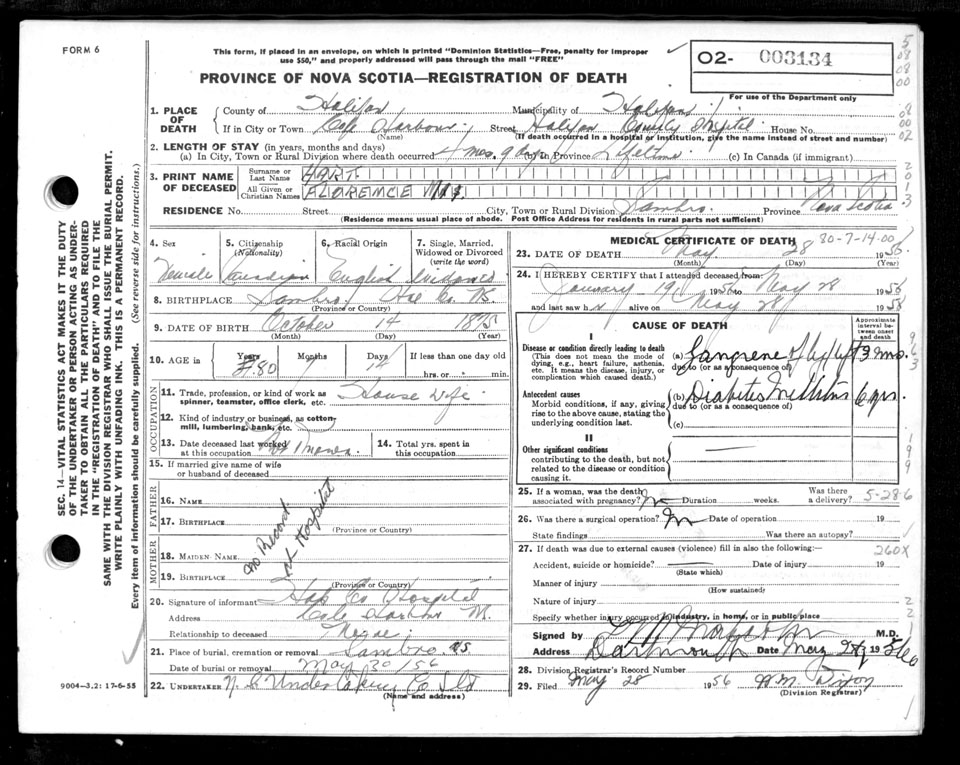 FORM 6
This form, if placed in an envelope, on which is printed "Dominion Statistics—Free, penalty for improper
use $50," and properly addressed will pass through the mail "FREE"
PROVINCE OF NOVA SCOTIA—REGISTRATION OF DEATH
02- 003134
For use of the Department only
SEC. 14—VITAL STATISTICS ACT MAKES IT THE DUTY
OF THE UNDERTAKER OR PERSON ACTING AS UNDER-
TAKER TO OBTAIN ALL THE PARTICULARS REQUIRED
IN THE "REGISTRATION OF DEATH" AND TO FILE THE
SAME WITH THE DIVISION REGISTRAR WHO SHALL ISSUE THE BURIAL PERMIT.
WRITE PLAINLY WITH UNFADING INK. THIS IS A PERMANENT RECORD.
Every item of information should be carefully supplied. (See reverse side for instructions.)
1. PLACE OF DEATH
County of Halifax Municipality of Halifax
If in City or Town Cole Harbour Street Halifax County Hospital House No.
(Name) (If death occurred in a hospital or institution, give the name instead of street and number)
2. LENGTH OF STAY (in years, months and days)
(a) In City, Town or Rural Division where death occurred 4 mos. 9 days (b) in Province Lifetime (c) In Canada (if immigrant)
3. PRINT NAME OF DECEASED
Surname or Last Name HART
All Given or Christian Names FLOREMCE Mrs.
RESIDENCE No. Street City, Town or Rural Division Sambro Province Nova Scotia
(Residence means usual place of abode. Post Office Address for residents in rural parts not sufficient)
4. Sex 5. Citizenship (Nationality) 6. Racial Origin 7. Single, Married, Widowed or Divorced (write the word)
Female Canadian English Widowed
8. BIRTHPLACE Sambro, Hfx Co. N.S.
(Province or Country)
9. DATE OF BIRTH October 14 1875
(Month) (Day) (Year)
10. AGE in Years 80 Months 7 Days 14 If less than one day old
hrs. or min.
OCCUPATION
11. Trade, profession, or kind of work as spinner, teamster, office clerk, etc. House wife
12. Kind of industry or business, as cotton-mill, lumbering, bank, etc.
13. Date deceased last worked at this occupation Not Known
14. Total yrs. spent in this occupation
15. If married give name of wife or husband of deceased
FATHER
16. NAME
17. BIRTHPLACE
(Province or Country)
No Record at Hospital
MOTHER
18. MAIDEN NAME
19. BIRTHPLACE
(Province or Country)
20. Signature of informant Hfx Co Hospital
Address Cole Harbour
Relationship to deceased
21. Place of burial, cremation or removal Sambro NS
Date of burial or removal May 30/56
22. UNDERTAKER N. S. Undertaking Co Ltd
(Name and address)
9004—3.2: 17-6-55
MEDICAL CERTIFICATE OF DEATH
80-7-14-00
23. DATE OF DEATH May 28 1956
(Month) (Day) (Year)
24. I HEREBY CERTIFY that I attended deceased from:
January 19 1956 to May 28 1956
and last saw h alive on May 28 1956
CAUSE OF DEATH
Approximate interval between onset and death
I
Disease or condition directly leading to death
(This does not mean the mode of dying, e.g., heart failure, asthenia, etc. It means the disease, injury, or complication which caused death.)
(a) Gangrene of 3 mo.
due to (or as a consequence of)
Antecedent causes
Morbid conditions, if any, giving rise to the above cause, stating the underlying condition last.
(b) Diabetes Mellitus 6 yrs.
due to (or as a consequence of)
(c)
II
Other significant conditions
contributing to the death, but not related to the disease or condition causing it.
25. If a woman, was the death associated with pregnancy? No Duration weeks. Was there a delivery?
5-28-6
26. Was there a surgical operation? No Date of operation 19
State findings Was there an autopsy?
27. If death was due to external causes (violence) fill in also the following:
260X
Accident, suicide or homicide? Date of injury 19
(State which)
Manner of injury
(How sustained)
Nature of injury
Specify whether injury occurred in industry, in home, or in public place
Signed by M.D.
Address Dartmouth Date May 28 1956
28. Division Registrar's Record Number
29. Filed May 28 1956 Wm. Dixon
(Division Registrar)